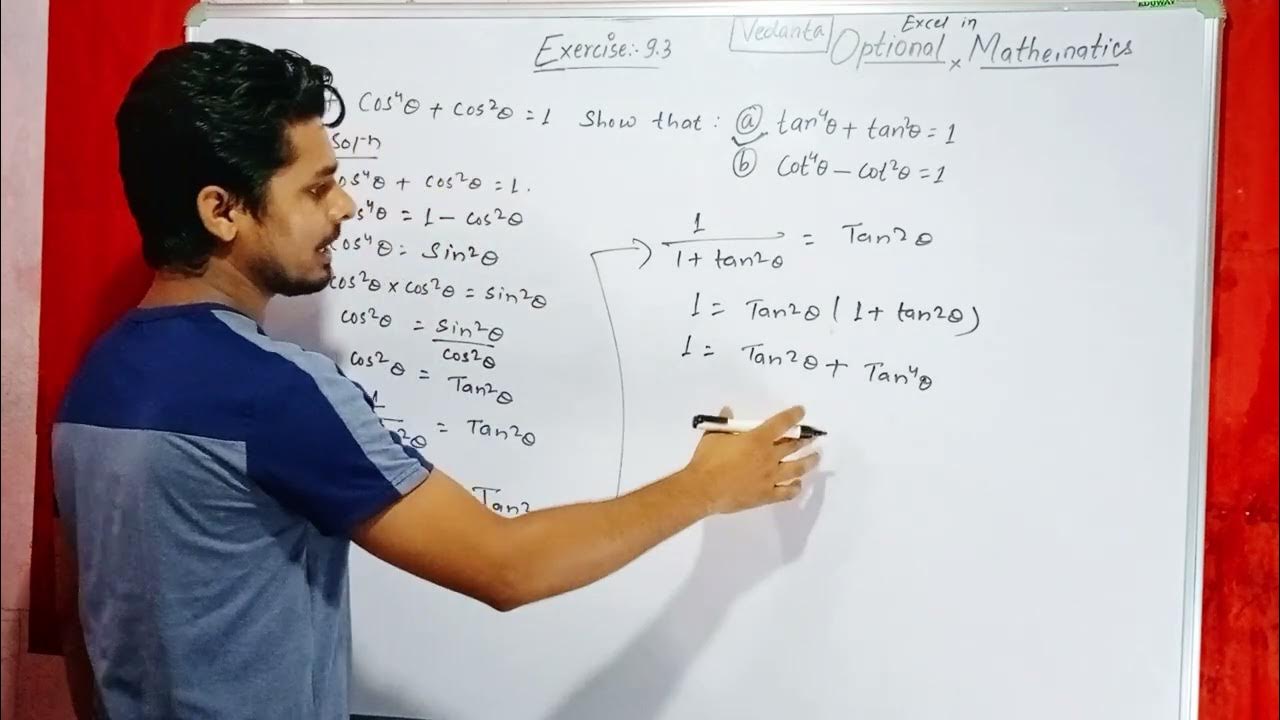 EDUWAY
Exercise:- 9.3
Vedanta
Excel in
Optional Mathematics
Cos⁴θ + cos²θ = 1 Show that : (a) tan⁴θ + tan²θ = 1
(b) Cot⁴θ – cot²θ = 1
Sol-n
os⁴θ + cos²θ = 1.
s⁴θ = 1 – cos²θ
os⁴θ = Sin²θ
cos²θ × cos²θ = sin²θ
cos²θ = sin²θ
cos²θ
cos²θ = Tan²θ
1
²θ = Tan²θ
Tan²
1
1 + tan²θ = Tan²θ
1 = Tan²θ ( 1 + tan²θ )
1 = Tan²θ + Tan⁴θ